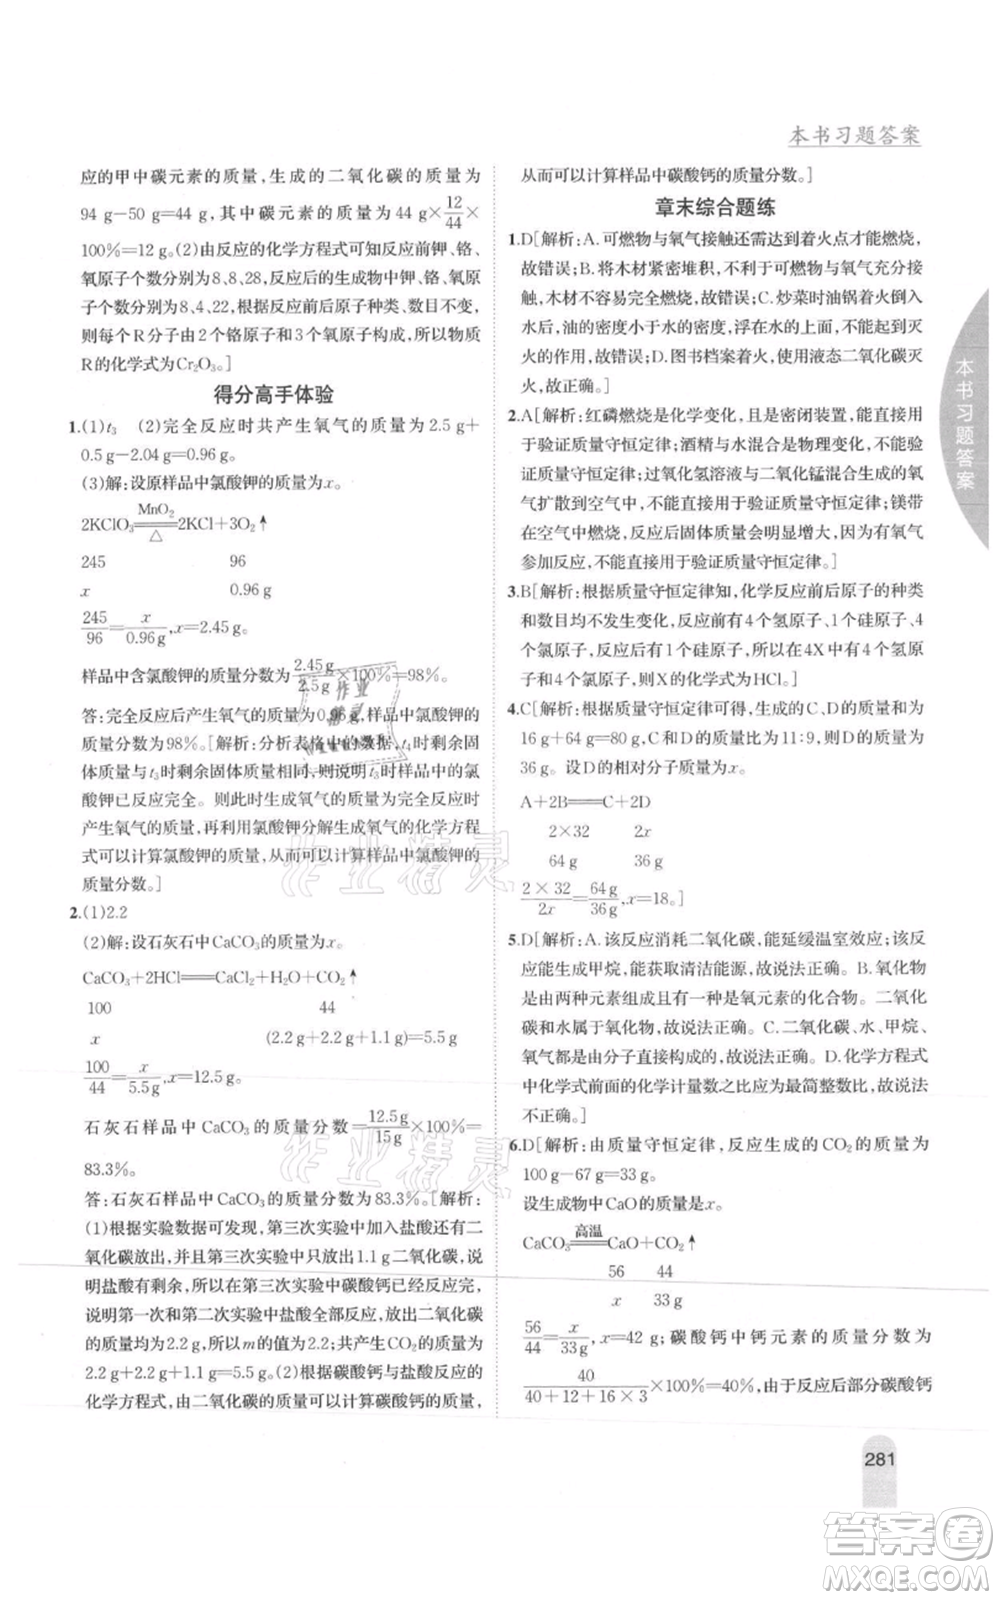 本书习题答案
应的甲中碳元素的质量,生成的二氧化碳的质量为
94 g-50 g=44 g,其中碳元素的质量为 44 g×12/44×
100%=12 g。(2)由反应的化学方程式可知反应前钾、铬、
氧原子个数分别为8、8、28,反应后的生成物中钾、铬、氧
原子个数分别为8、4、22,根据反应前后原子种类、数目不变,
则每个R分子由2个铬原子和3个氧原子构成,所以物质
R的化学式为Cr₂O₃。]
得分高手体验
1.(1)t₃ (2)完全反应时共产生氧气的质量为2.5 g+
0.5 g-2.04 g=0.96 g。
(3)解:设原样品中氯酸钾的质量为x。
2KClO₃ =MnO₂/△= 2KCl+3O₂↑
245 96
x 0.96 g
245/96=x/0.96 g,x=2.45 g。
样品中含氯酸钾的质量分数为2.45 g/2.5 g×100%=98%。
答:完全反应后产生氧气的质量为0.96 g,样品中氯酸钾的
质量分数为98%。[解析:分析表格中的数据,t₄时剩余固
体质量与t₃时剩余固体质量相同,则说明t₃时样品中的氯
酸钾已反应完全。则此时生成氧气的质量为完全反应时
产生氧气的质量,再利用氯酸钾分解生成氧气的化学方程
式可以计算氯酸钾的质量,从而可以计算样品中氯酸钾的
质量分数。]
2.(1)2.2
(2)解:设石灰石中CaCO₃的质量为x。
CaCO₃+2HCl══CaCl₂+H₂O+CO₂↑
100 44
x (2.2 g+2.2 g+1.1 g)=5.5 g
100/44=x/5.5 g,x=12.5 g。
石灰石样品中CaCO₃的质量分数=12.5 g/15 g×100%=
83.3%。
答:石灰石样品中CaCO₃的质量分数为83.3%。[解析:
(1)根据实验数据可发现,第三次实验中加入盐酸还有二
氧化碳放出,并且第三次实验中只放出1.1 g二氧化碳,说
明盐酸有剩余,所以在第三次实验中碳酸钙已经反应完,
说明第一次和第二次实验中盐酸全部反应,放出二氧化碳
的质量均为2.2 g,所以m的值为2.2;共产生CO₂的质量为
2.2 g+2.2 g+1.1 g=5.5 g。(2)根据碳酸钙与盐酸反应的
化学方程式,由二氧化碳的质量可以计算碳酸钙的质量,
从而可以计算样品中碳酸钙的质量分数。]
章末综合题练
1.D[解析:A.可燃物与氧气接触还需达到着火点才能燃烧,
故错误;B.将木材紧密堆积,不利于可燃物与氧气充分接
触,木材不容易完全燃烧,故错误;C.炒菜时油锅着火倒入
水后,油的密度小于水的密度,浮在水的上面,不能起到灭
火的作用,故错误;D.图书档案着火,使用液态二氧化碳灭
火,故正确。]
2.A[解析:红磷燃烧是化学变化,且是密闭装置,能直接用
于验证质量守恒定律;酒精与水混合是物理变化,不能用
于验证质量守恒定律;过氧化氢溶液与二氧化锰混合生成的氧
气扩散到空气中,不能直接用于验证质量守恒定律;镁带
在空气中燃烧,反应后固体质量明显增大,因为有氧气
参加反应,不能直接用于验证质量守恒定律。]
3.B[解析:根据质量守恒定律知,化学反应前后原子的种类
和数目均不发生变化,反应前有4个氢原子、1个硅原子、4
个氯原子,反应后有1个硅原子,所以在4X中有4个氢原子
和4个氯原子,则X的化学式为HCl。]
4.C[解析:根据质量守恒定律可得,生成的C、D的质量为
16 g+64 g=80 g,C和D的质量比为11:9,所以D的质量为
36 g。设D的相对分子质量为x。
A+2B══C+2D
2×32 2x
64 g 36 g
2×32/2x=64 g/36 g,x=18。]
5.D[解析:A.该反应消耗二氧化碳,能延缓温室效应;该反
应能生成甲烷,能获得清洁能源,故说法正确。B.氧化物
是由两种元素组成且有一种是氧元素的化合物。二氧化
碳和水属于氧化物,故说法正确。C.二氧化碳、水、甲烷、
氧气都是由分子直接构成的,故说法正确。D.化学方程式
中化学式前面的化学计量数之比应为最简整数比,故说法
不正确。]
6.D[解析:由质量守恒定律,反应生成的CO₂的质量为
100 g-67 g=33 g。
设生成物中CaO的质量是x。
CaCO₃ =高温= CaO+CO₂↑
56 44
x 33 g
56/44=x/33 g,x=42 g;碳酸钙中钙元素的质量分数为
40/(40+12+16×3)×100%=40%,由于反应后部分碳酸钙
本书习题答案
281
作业精灵
作业精灵
作业精灵
答案圈
MXQE.COM